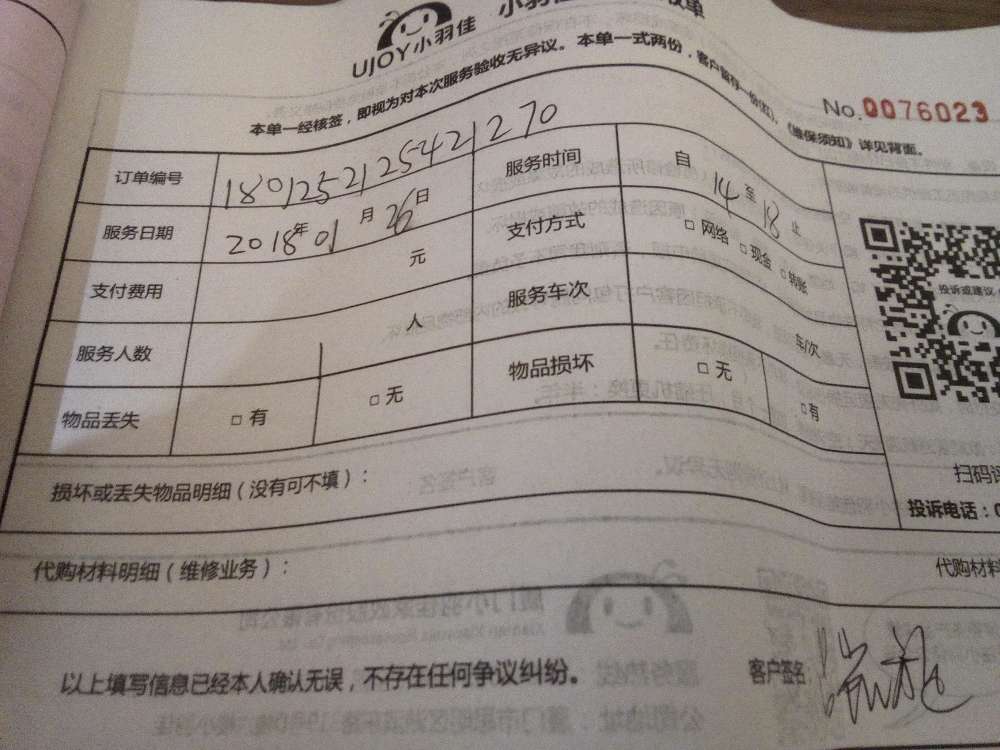 UJOY小羽佳 小羽佳 收单
本单一经核签，即视为对本次服务验收无异议。本单一式两份，客户留存一份(红)，《维保须知》详见背面。
No.0076023
订单编号 1801252125421270 服务时间 自 14 至 18 止
服务日期 2018年01月26日 支付方式 □ 网络 □ 现金 □ 转账
支付费用 元 服务车次 车/次
服务人数 人 物品损坏 □ 无 □有
物品丢失 □ 有 □ 无
投诉或建议
损坏或丢失物品明细（没有可不填）：
扫码评
投诉电话：0
代购材料明细（维修业务）：
代购材料
以上填写信息已经本人确认无误，不存在任何争议纠纷。
客户签名: